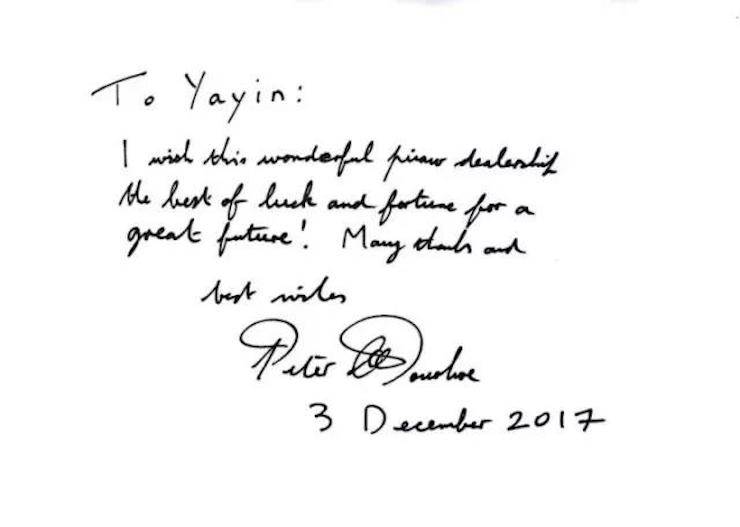 To Yayin:
I wish this wonderful piano dealership
the best of luck and fortune for a
great future! Many thanks and
best wishes
Peter Donohoe
3 December 2017